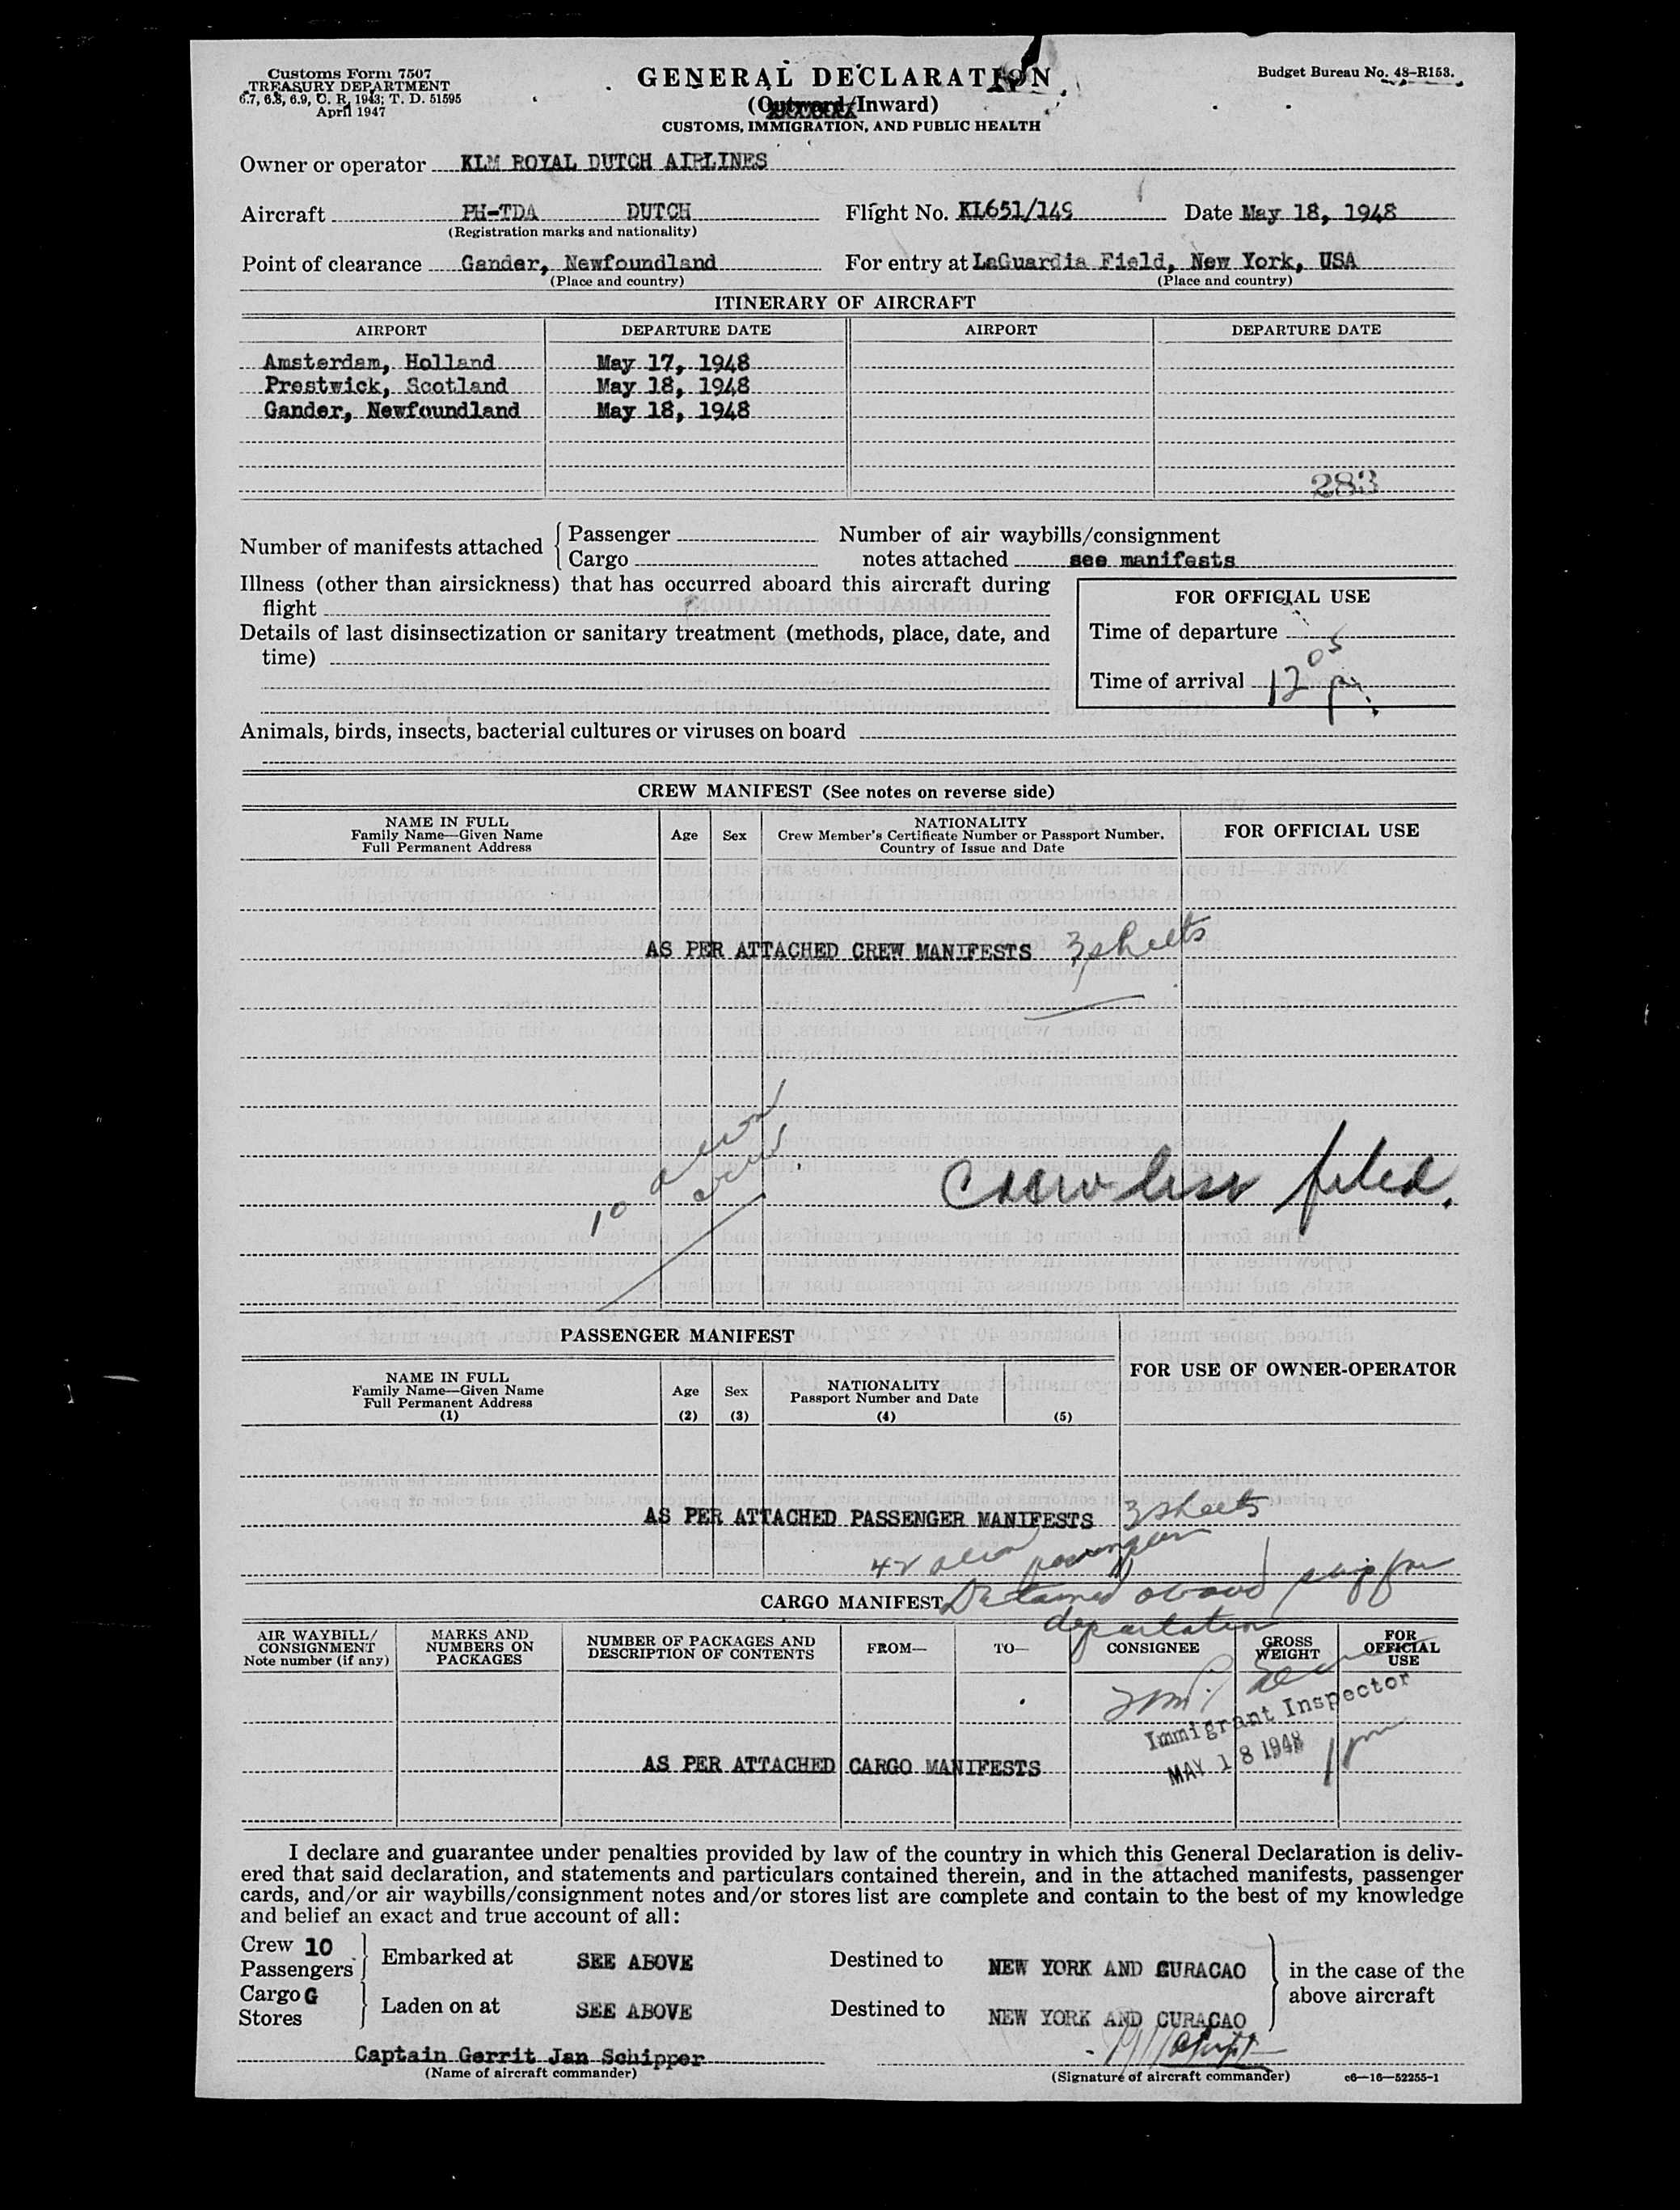 Customs Form 7507
TREASURY DEPARTMENT
6.7, 6.8, 6.9, C. R. 1943; T. D. 51595
April 1947
GENERAL DECLARATION
(Outward/Inward)
CUSTOMS, IMMIGRATION, AND PUBLIC HEALTH
Budget Bureau No. 48-R153.
Owner or operator KLM ROYAL DUTCH AIRLINES
Aircraft PH-TDA DUTCH Flight No. KL651/149 Date May 18, 1948
(Registration marks and nationality)
Point of clearance Gander, Newfoundland For entry at LaGuardia Field, New York, USA
(Place and country) (Place and country)
ITINERARY OF AIRCRAFT
AIRPORT DEPARTURE DATE AIRPORT DEPARTURE DATE
Amsterdam, Holland May 17, 1948
Prestwick, Scotland May 18, 1948
Gander, Newfoundland May 18, 1948
283
Number of manifests attached { Passenger
Cargo
Number of air waybills/consignment
notes attached see manifests
Illness (other than airsickness) that has occurred aboard this aircraft during
flight
Details of last disinsectization or sanitary treatment (methods, place, date, and
time)
FOR OFFICIAL USE
Time of departure
Time of arrival 12 05 pm.
Animals, birds, insects, bacterial cultures or viruses on board
CREW MANIFEST (See notes on reverse side)
NAME IN FULL
Family Name—Given Name
Full Permanent Address
Age
Sex
NATIONALITY
Crew Member's Certificate Number or Passport Number,
Country of Issue and Date
FOR OFFICIAL USE
AS PER ATTACHED CREW MANIFESTS 3 sheets
10 alien
crew
Crew list filed.
PASSENGER MANIFEST
FOR USE OF OWNER-OPERATOR
NAME IN FULL
Family Name—Given Name
Full Permanent Address
(1)
Age
(2)
Sex
(3)
NATIONALITY
Passport Number and Date
(4)
(5)
AS PER ATTACHED PASSENGER MANIFESTS 3 sheets
42 alien passengers
CARGO MANIFEST
Detained aboard ship for
deportation
AIR WAYBILL/
CONSIGNMENT
Note number (if any)
MARKS AND
NUMBERS ON
PACKAGES
NUMBER OF PACKAGES AND
DESCRIPTION OF CONTENTS
FROM—
TO—
CONSIGNEE
GROSS
WEIGHT
FOR
OFFICIAL
USE
Immigrant Inspector
MAY 18 1948 1 pm
AS PER ATTACHED CARGO MANIFESTS
I declare and guarantee under penalties provided by law of the country in which this General Declaration is deliv-
ered that said declaration, and statements and particulars contained therein, and in the attached manifests, passenger
cards, and/or air waybills/consignment notes and/or stores list are complete and contain to the best of my knowledge
and belief an exact and true account of all:
Crew 10
Passengers
Embarked at SEE ABOVE Destined to NEW YORK AND CURACAO
Cargo G
Stores
Laden on at SEE ABOVE Destined to NEW YORK AND CURACAO
in the case of the
above aircraft
Captain Gerrit Jan Schipper
(Name of aircraft commander)
(Signature of aircraft commander)
c6—16—52255-1